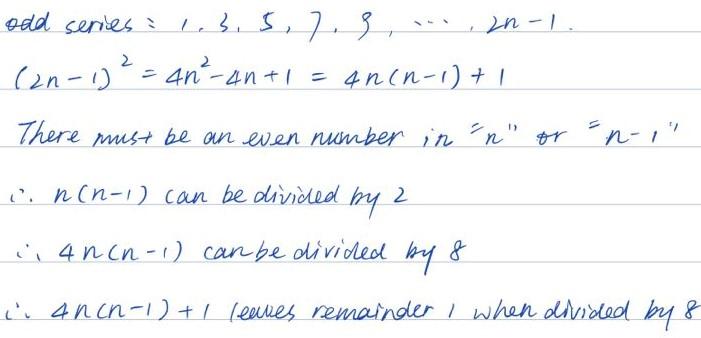 odd series : 1, 3, 5, 7, 9, ..., 2n-1.
(2n-1)² = 4n²-4n+1 = 4n(n-1)+1
There must be an even number in "n" or "n-1"
∴ n(n-1) can be divided by 2
∴ 4n(n-1) can be divided by 8
∴ 4n(n-1)+1 leaves remainder 1 when divided by 8